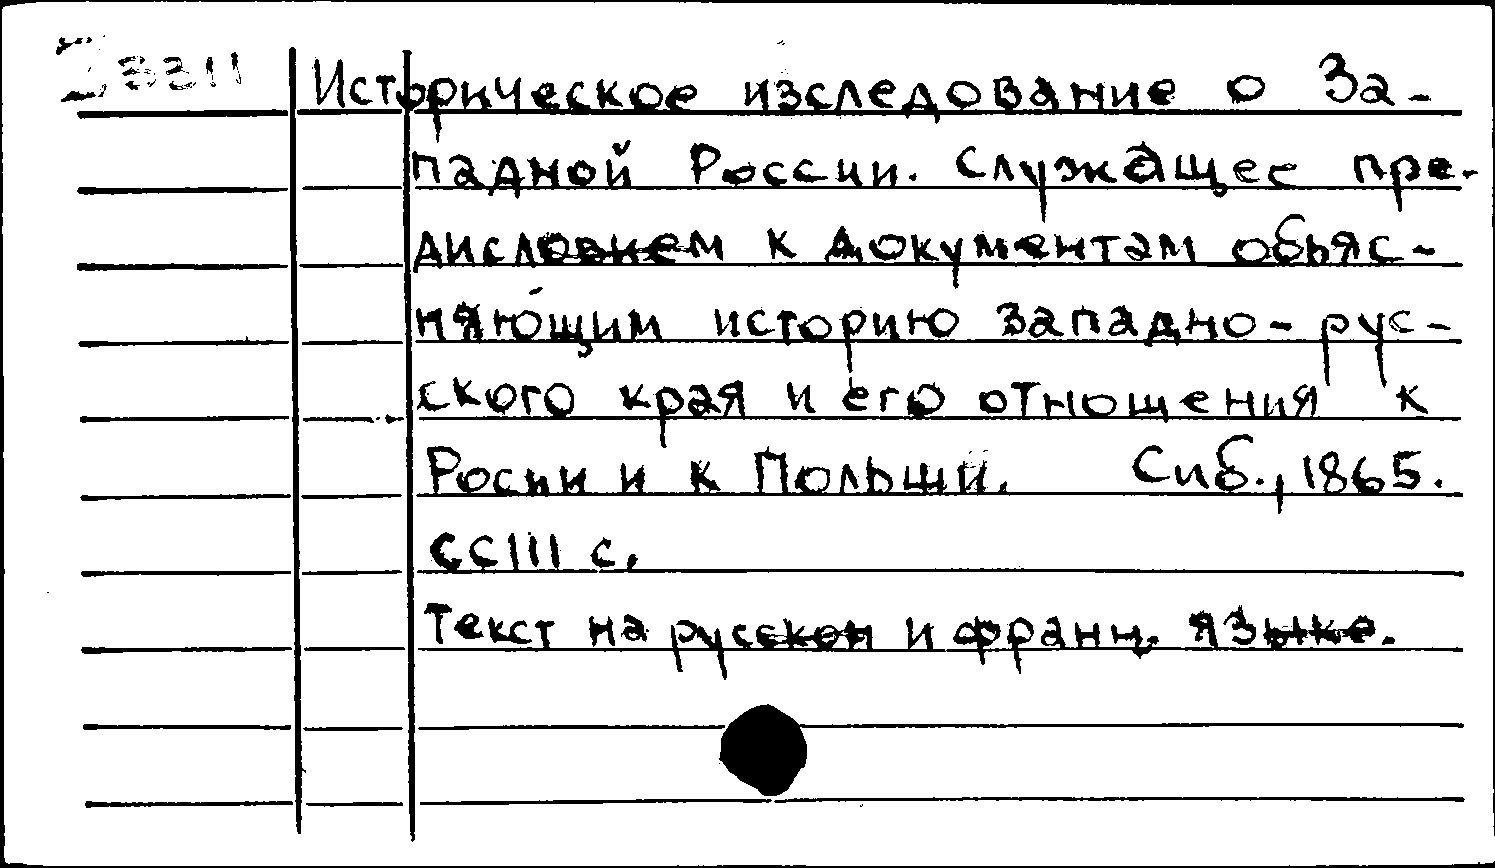 I 3311 Историческое изследование о За-
падной России. Служащее пре-
дисловием к документам обьяс-
няющим историю западно-рус-
ского края и его отношения к
Росии и к Польши. Спб., 1865.
CCIII с.
Текст на русском и франц. языке.